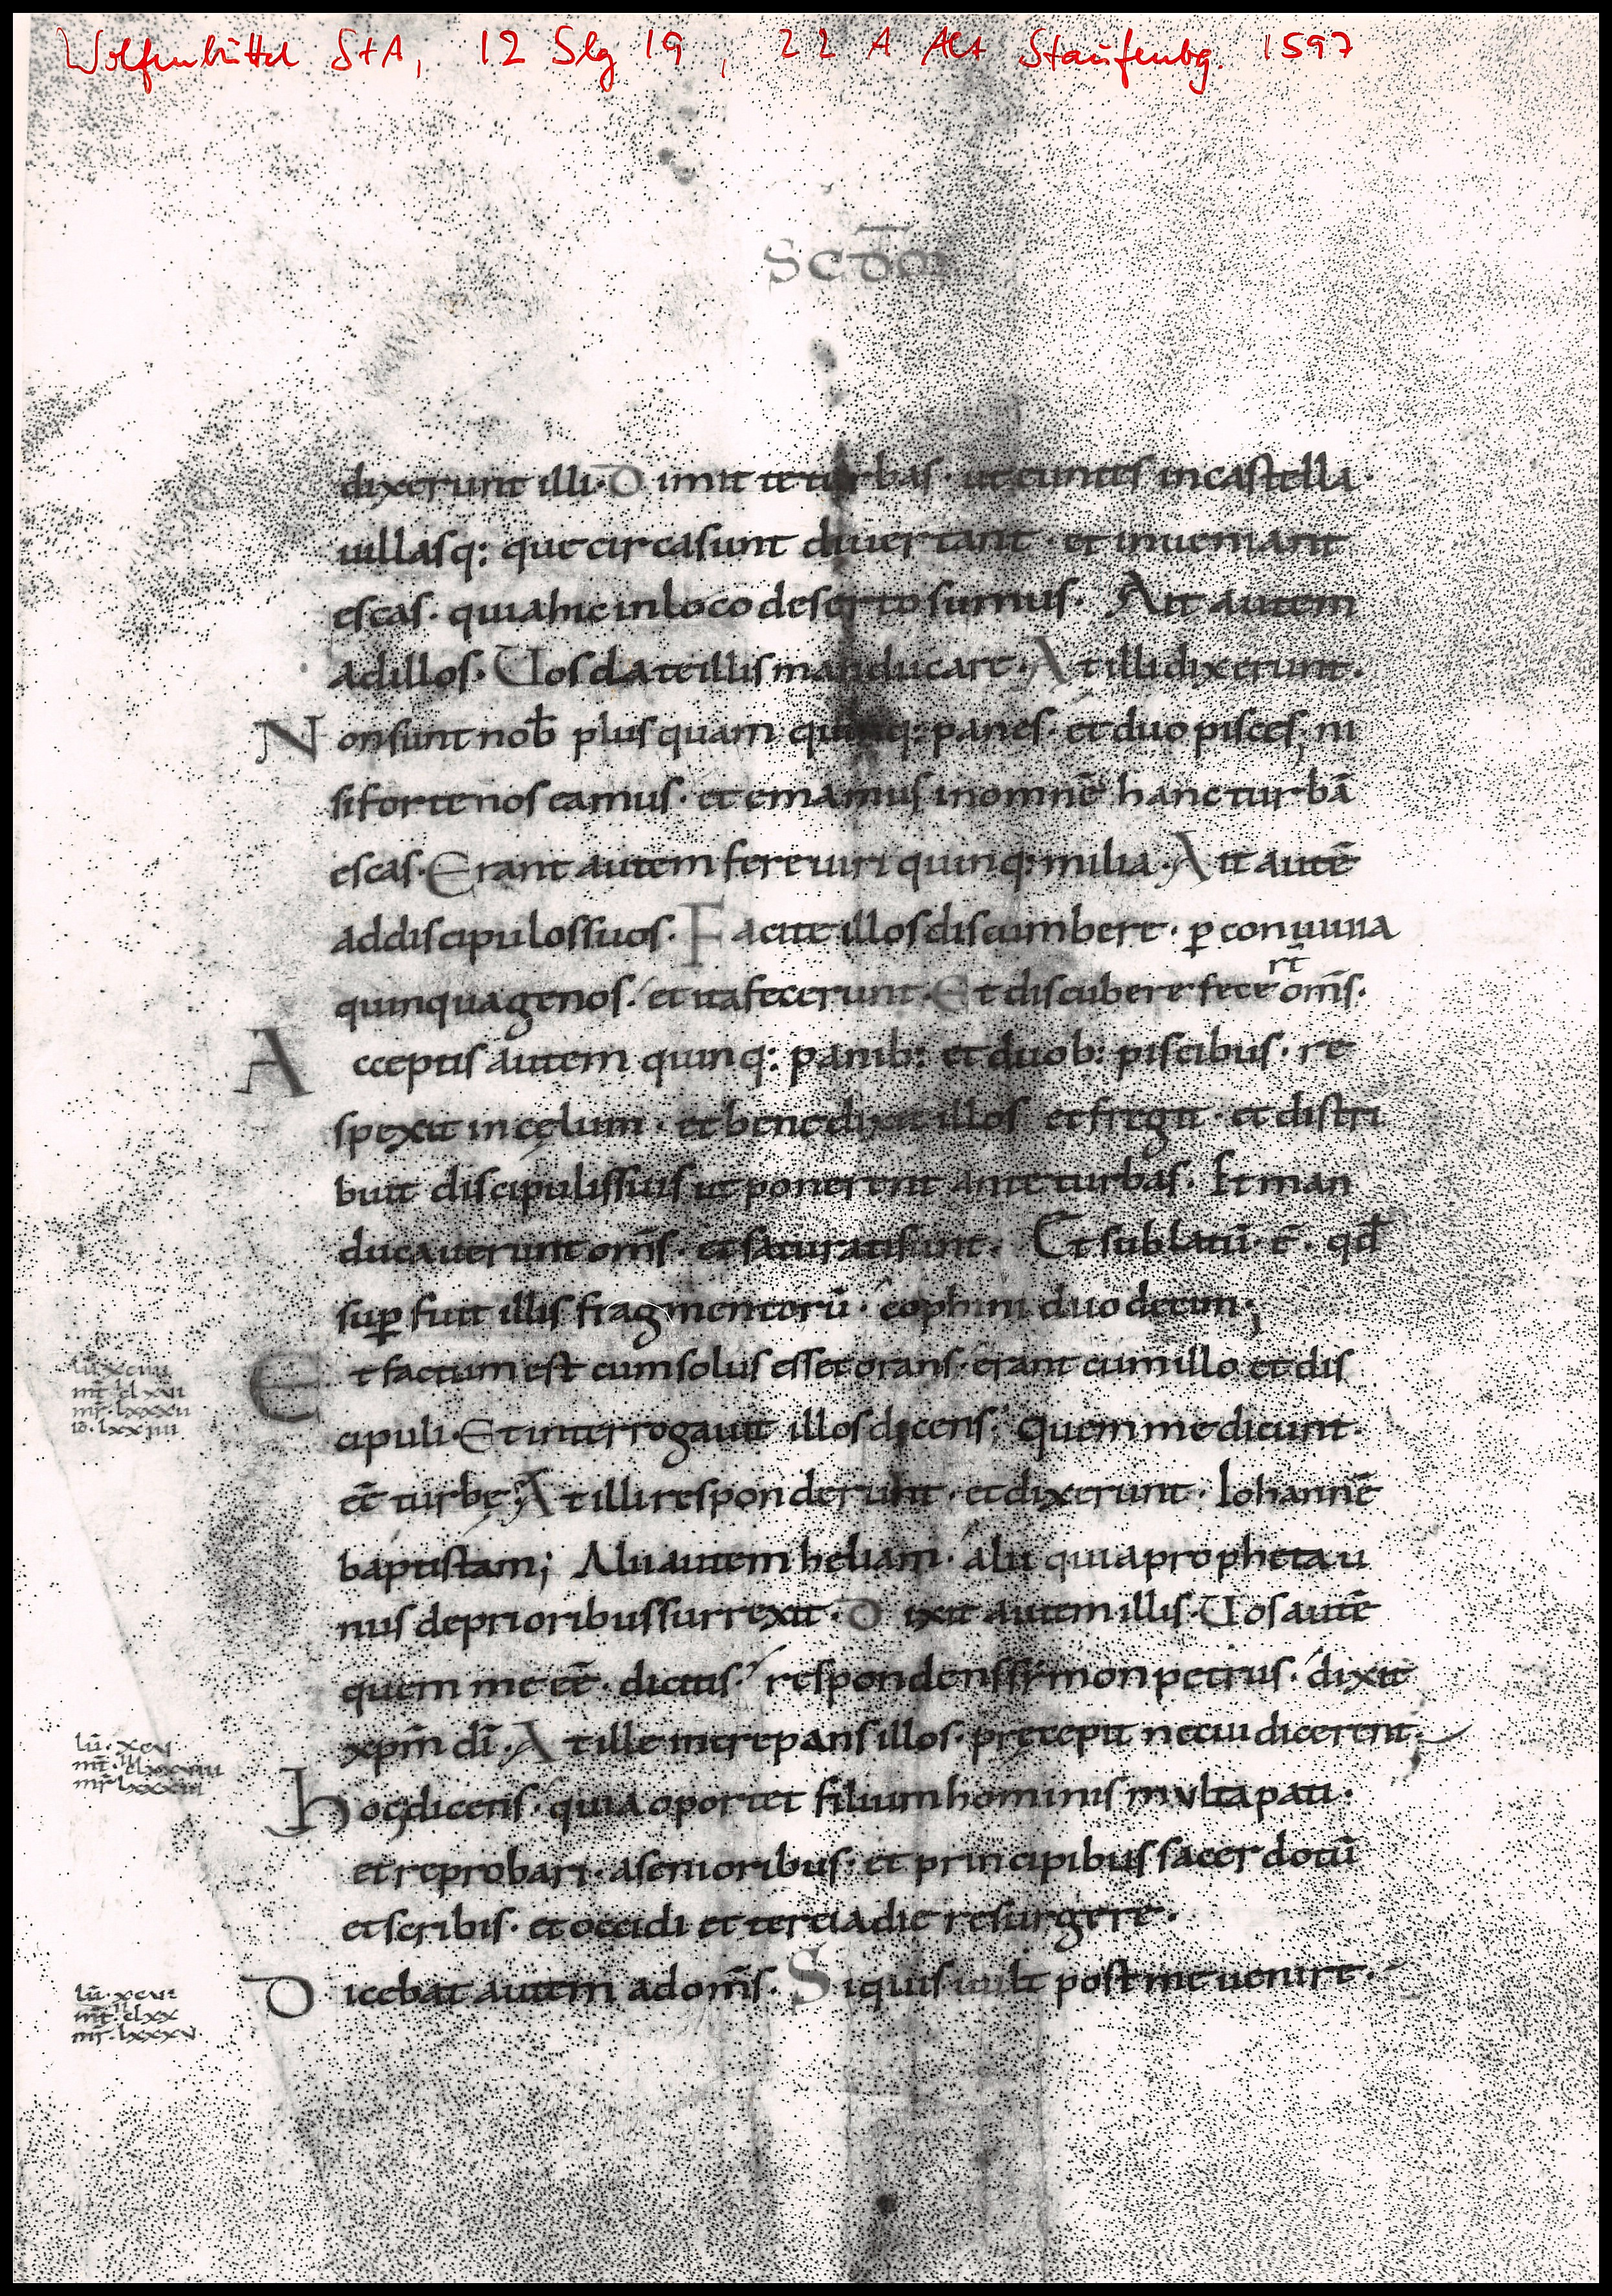 Wolfenbüttel StA, 12 Slg 19, 22 A Alt Staufenbg. 1597
Scđm
dixerunt illi· Dimitte turbas· ut euntes in castella·
uillasq: que circa sunt diuertant· et inueniant
escas· quia hic in loco deserto sumus· Ait autem
ad illos· Uos date illis manducare· At illi dixerunt·
Non sunt nob̄ plus quam quinq: panes· et duo pisces; ni
si forte nos eamus· et emamus in omnē hanc turbā
escas· Erant autem fere uiri quinq: milia· Ait autē
ad discipulos suos· Facite illos discumbere· ꝑ conuiuia
quinquagenos· et ita fecerunt· Et discubere fecer̄t om̄s·
Acceptis autem quinq: panib: et duob: piscibus· re
spexit in cęlum· et benedixit illos et fregit· et distri
buit discipulis suis ut ponerent ante turbas· Et man
ducauerunt om̄s· et saturati sunt· Et sublatū· ē· qđ
suꝑ fuit illis fragmentorū· cophini duodecim;
Et factum est cum solus esset orans· erant cum illo et dis
cipuli· Et interrogauit illos dicens; Quem me dicunt·
eē turbę? At illi responderunt· et dixerunt· Iohannē
baptistam; Alii autem heliam· alii quia propheta u
nus de prioribus surrexit· Dixit autem illis· Uos autē
quem me eē· dicitis· respondens symon petrus· dixit
xp̄m dī· At ille increpans illos· pręcepit ne cui dicerent·
Hoc dicens· quia oportet filium hominis mvlta pati·
et reprobari· a senioribus· et principibus sacerdotū
et scribis· et occidi et tercia die resurgere·
Dicebat autem ad om̄s· Siquis uult post me uenire·
lū· xciiii
mt̄· clxvi
mr̄· lxxxii
iō· lxxiiii
lū· xcv
mr̄· lxxxiii
lū· xcvi
mt̄· clxx
mr̄· lxxxv